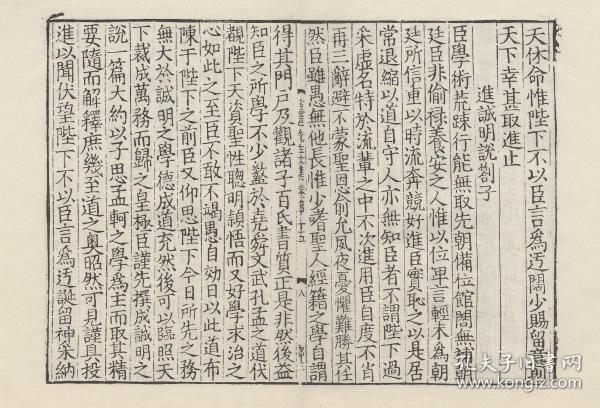 天休命惟陛下不以臣言爲迂闊少賜留意則
天下幸甚取進止
進誠明說劄子
臣學術荒疎行能無取先朝備位館閣無補朝
廷臣非偷祿養安之人惟以位卑言輕未爲朝
廷所信重以時流奔競好進臣實恥之以是居
常退縮以道自守人亦無知臣者不謂陛下過
采虛名特於流輩之中不次進用臣自度不肖
再三辭避不蒙聖恩俞允夙夜憂懼難勝其任
然臣雖愚無他長惟少者聖人經籍之學自謂
八
得其門戶及觀諸子百氏書質正是非然後益
知臣之所學不少蓋於堯舜文武孔孟之道伏
觀陛下天資聖性聰明頴悟而又好學求治之
心如此之至臣不敢不竭愚自効日以此道布
陳于陛下之前臣又仰思陛下今日所先之務
無大於誠明之學德成道充然後可以臨照天
下裁成萬務而歸之皇極臣謹先撰成誠明之
說一篇大約以子思孟軻之學爲主而取其精
要隨而解釋庶幾至道之奧昭然可見謹具投
進以聞伏望陛下不以臣言爲迂誕留神采納
孔夫子旧书网
www.kongfz.com